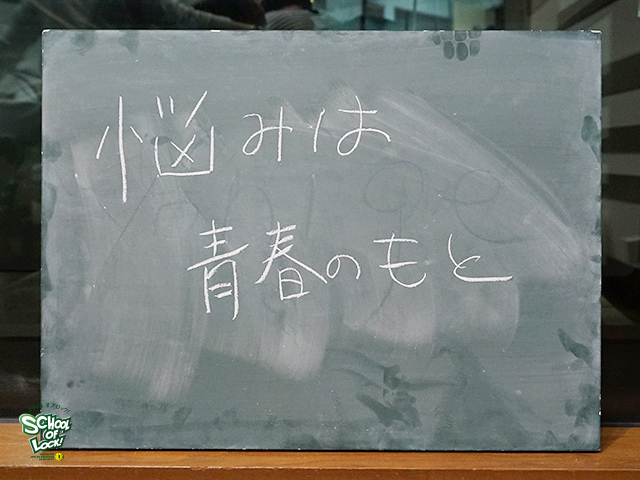 悩みは
青春のもと
SCHOOL
OF
LOCK!